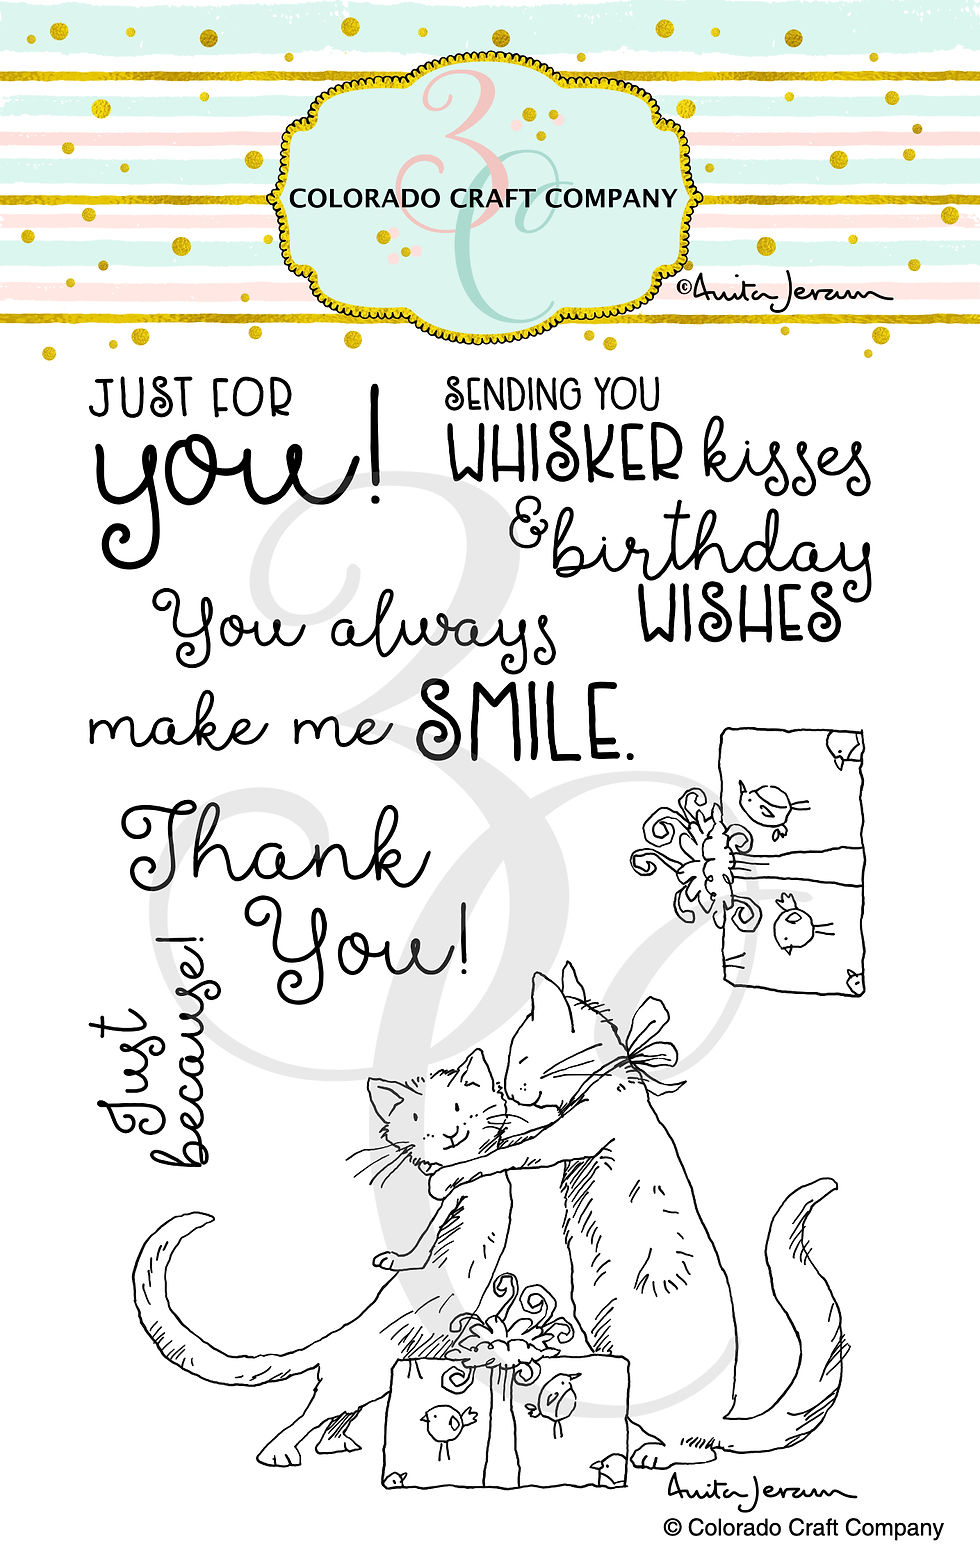 3C
COLORADO CRAFT COMPANY
©Anita Jeram
JUST FOR
you!
SENDING YOU
WHISKER kisses
& birthday
WISHES
You always
make me SMILE.
Thank
You!
Just
because!
Anita Jeram
© Colorado Craft Company